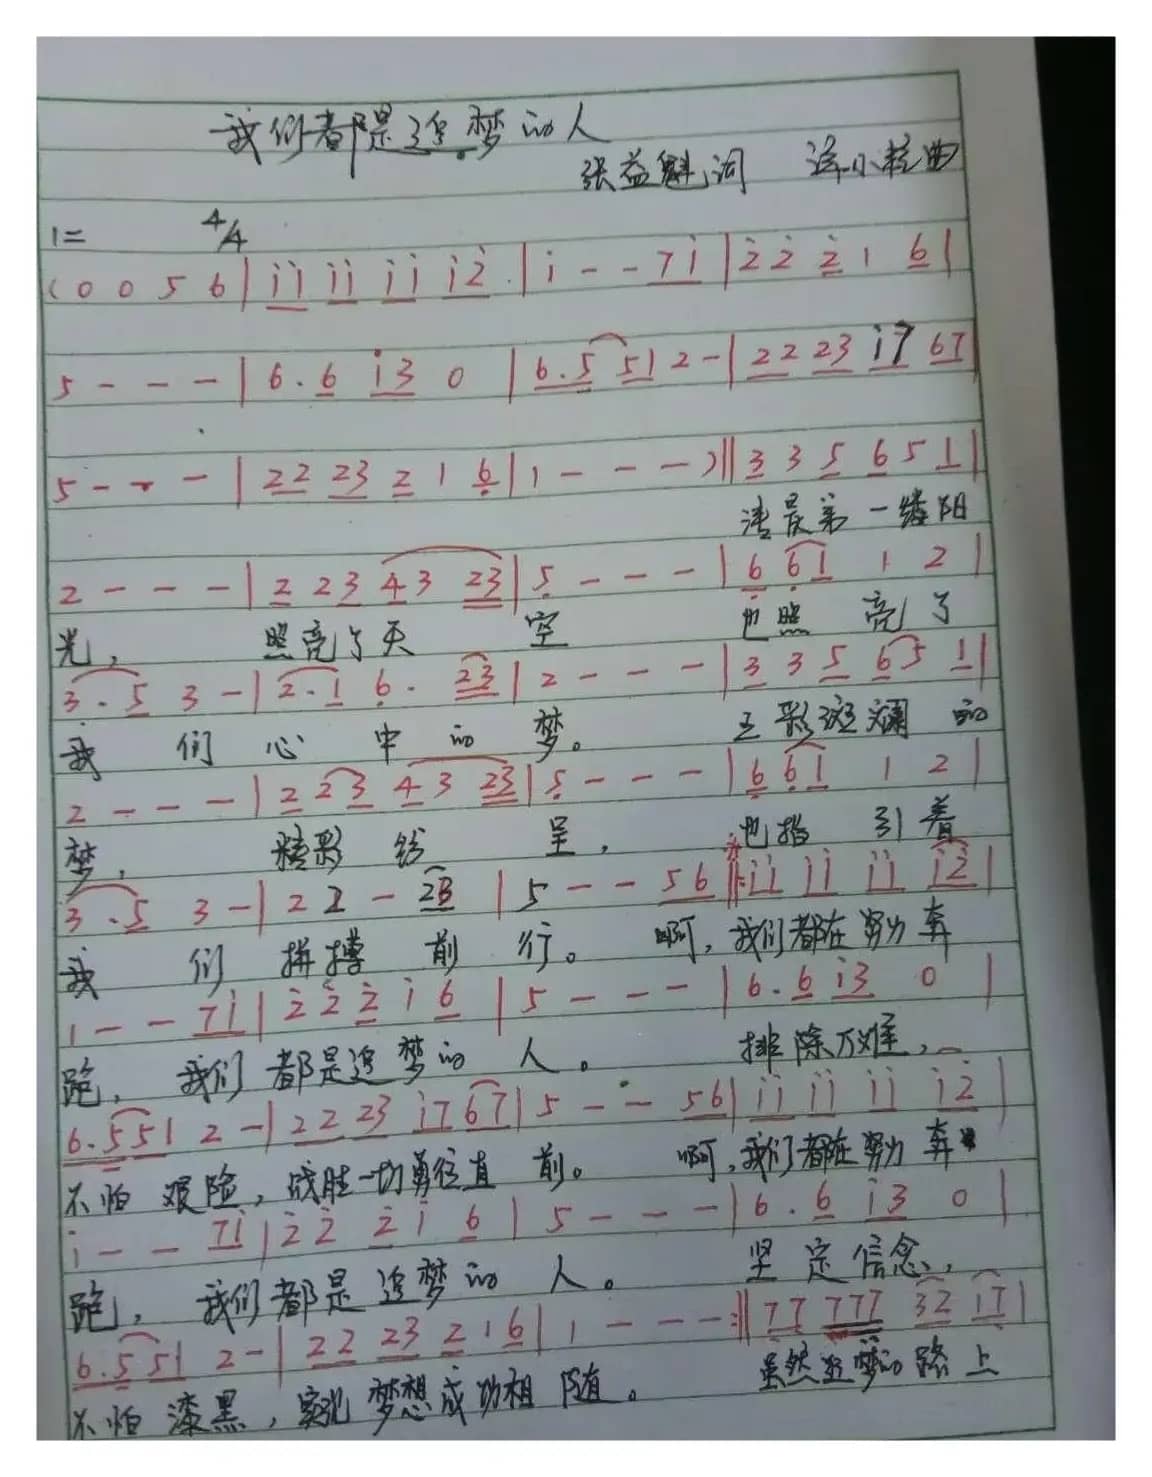 我们都是追梦的人
张益魁词 曲
1= 4/4
(0 0 5 6 | i i i i i i i 2 | i - - 7 i | 2 2 2 1 6 |
5 - - - | 6. 6 i 3 0 | 6. 5 5 1 2 - | 2 2 2 3 i 7 6 7 |
5 - - - | 2 2 2 3 2 1 6 | 1 - - - ) || 3 3 5 6 5 1 |
清晨第一缕阳
2 - - - | 2 2 3 4 3 2 3 | 5 - - - | 6 6 1 1 2 |
光, 照亮了天 空 也照 亮了
3 . 5 3 - | 2 . 1 6 . 2 3 | 2 - - - | 3 3 5 6 5 1 |
我 们 心 中 的 梦。 五彩斑斓 的
2 - - - | 2 2 3 4 3 2 3 | 5 - - - | 6 6 1 1 2 |
梦, 精彩 纷 呈, 也指 引着
3 . 5 3 - | 2 2 - 2 3 | 5 - - 5 6 ||: i i i i i i i 2 |
我 们 拼搏 前 行。 啊, 我们都在努力 奔
1 - - 7 i | 2 2 2 i 6 | 5 - - - | 6. 6 i 3 0 |
跑, 我们都是追梦的 人。 排除万难,
6. 5 5 1 2 - | 2 2 2 3 i 7 6 7 | 5 - - 5 6 | i i i i i i i 2 |
不怕 艰险, 战胜一切勇往直 前。 啊, 我们都在努力 奔
i - - 7 i | 2 2 2 i 6 | 5 - - - | 6 . 6 i 3 0 |
跑, 我们都是追梦的 人。 坚定信念,
6. 5 5 1 2 - | 2 2 2 3 2 1 6 | 1 - - - :|| 7 7 7 7 7 3 2 1 7 |
不怕 漆黑, 实现 梦想成功相 随。 虽然追梦的路上